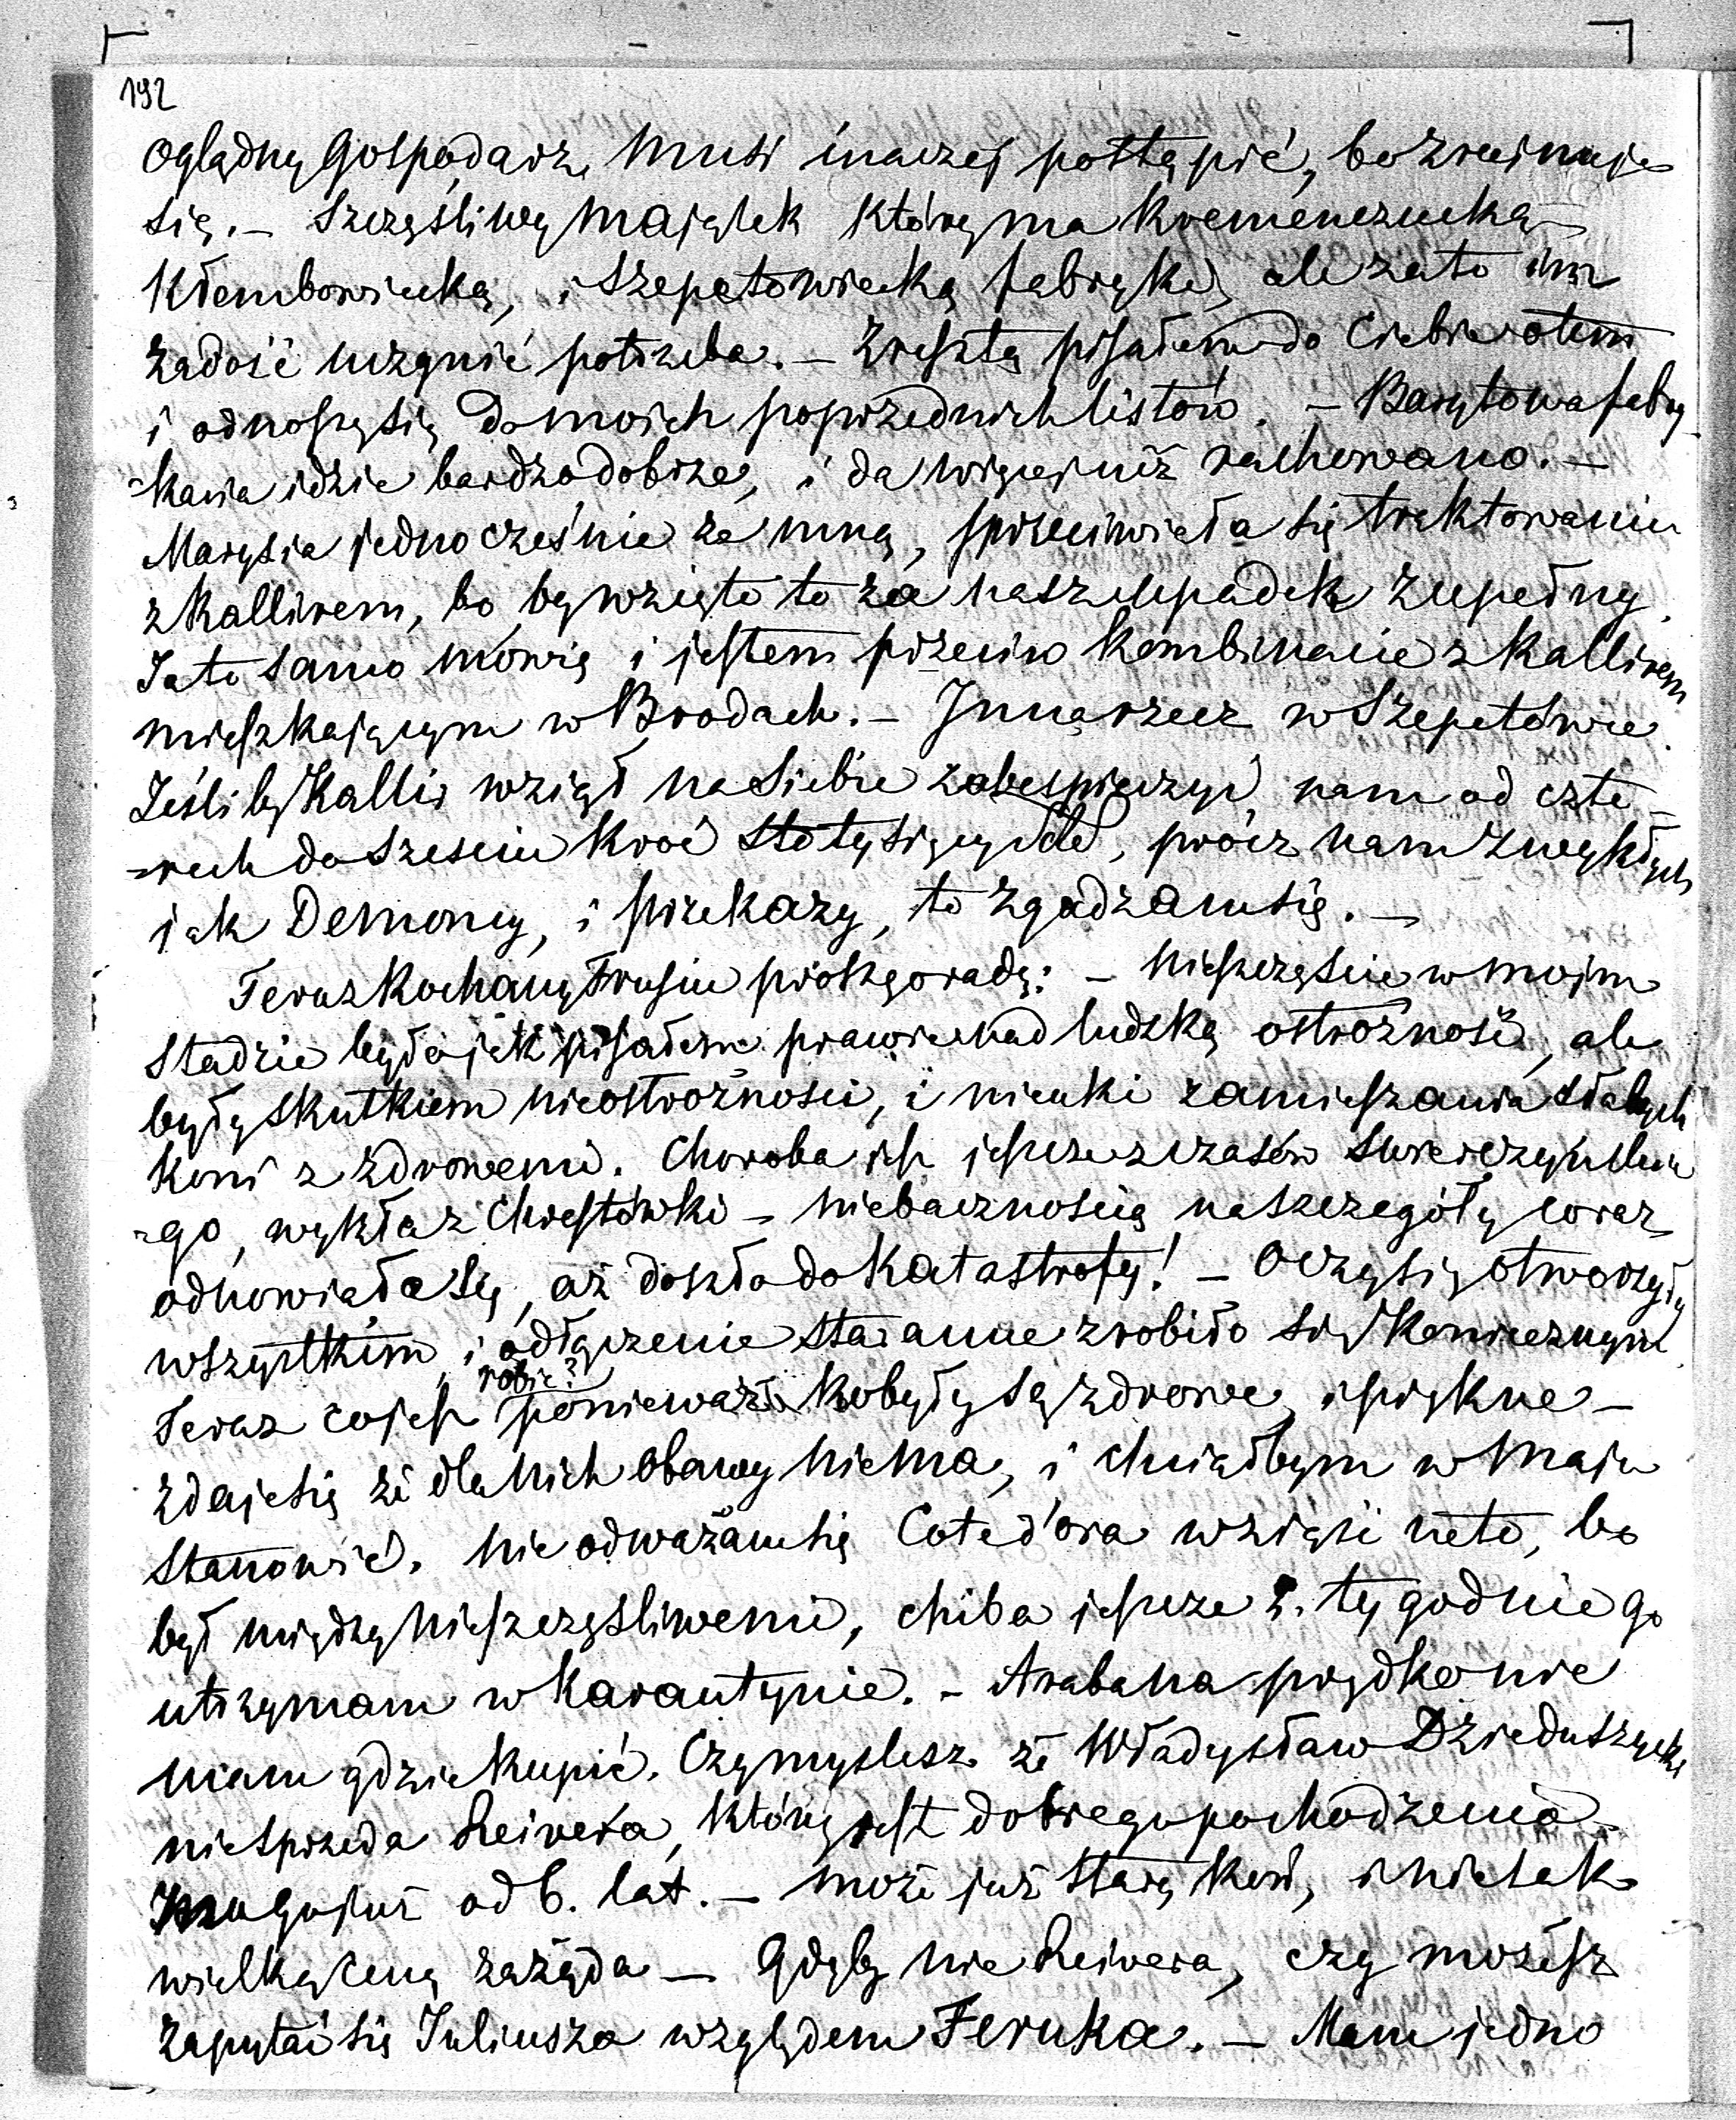 192
oglądny Gospodarz, musi inaczej postąpić, bo zrujnuje
się. – Szczęśliwy majątek który ma Kremenczucką
Kłembowiecką, i Szepetowiecką fabrykę, ale zato im
zadość uczynić potrzeba. – Zresztą pisałem do Ciebie otem
i odnoszę się do moich poprzednich listów. – Barytowa fabry
-kania idzie bardzo dobrze, i da więcej niż rachowano. –
Marysia jednocześnie ze mną, sprzeciwiała się traktowaniu
z Kallirem, bo by wzięto to za nasz upadek zupełny.
Ja to samo mówię i jestem przeciw kombinacie z Kallirem
mieszkającym w Brodach. – Inna rzecz w Szepetówce.
Jeśliby Kallir wziął na siebie zabespieczyć nam od czte-
-rech do sześciu kroć sto tysięcy, prócz nam zwykłych
jak Demoncy, i przekazy, to zgadzam się. –
Teraz Kochany Frusiu proszę o radę: – nieszczęście w moim
stadzie było jak pisałem prawie nad ludzką ostrożność, ale
były skutkiem nieostrożności, i nieuki zamieszania słabych
koni z zdrowemi. Choroba jest jeszcze z czasów
-go, wyszła z Chrestówki – niebacznością na szczegóły coraz
odnowiała się, aż doszło do Katastrofy! – Oczy się otworzyły
wszystkim, i odłączenie staranne zrobiło się koniecznym.
Teraz co jest robić? ponieważ kobyły są zdrowe, i piękne –
zdaje się że dla nich obawy niema, i chciałbym w maju
stanowić. Nie odważam się Coted'ora wziąść neto, bo
był między nieszczęśliwemi, chiba jeszcze tygodnie go
utrzymam w Karantynie. – Araba na prędko nie
mam gdzie kupić. Czy myslisz że Władysław Dzieduszycki
nie sprzeda Reivera, który jest dobrego pochodzenia
go już od 6. lat. – może już stary koń, i nie tak
wielką cenę zażąda – Gdyby nie Reivera, czy możesz
zapytać się Juliusza względem Feruka. – Mam jedno